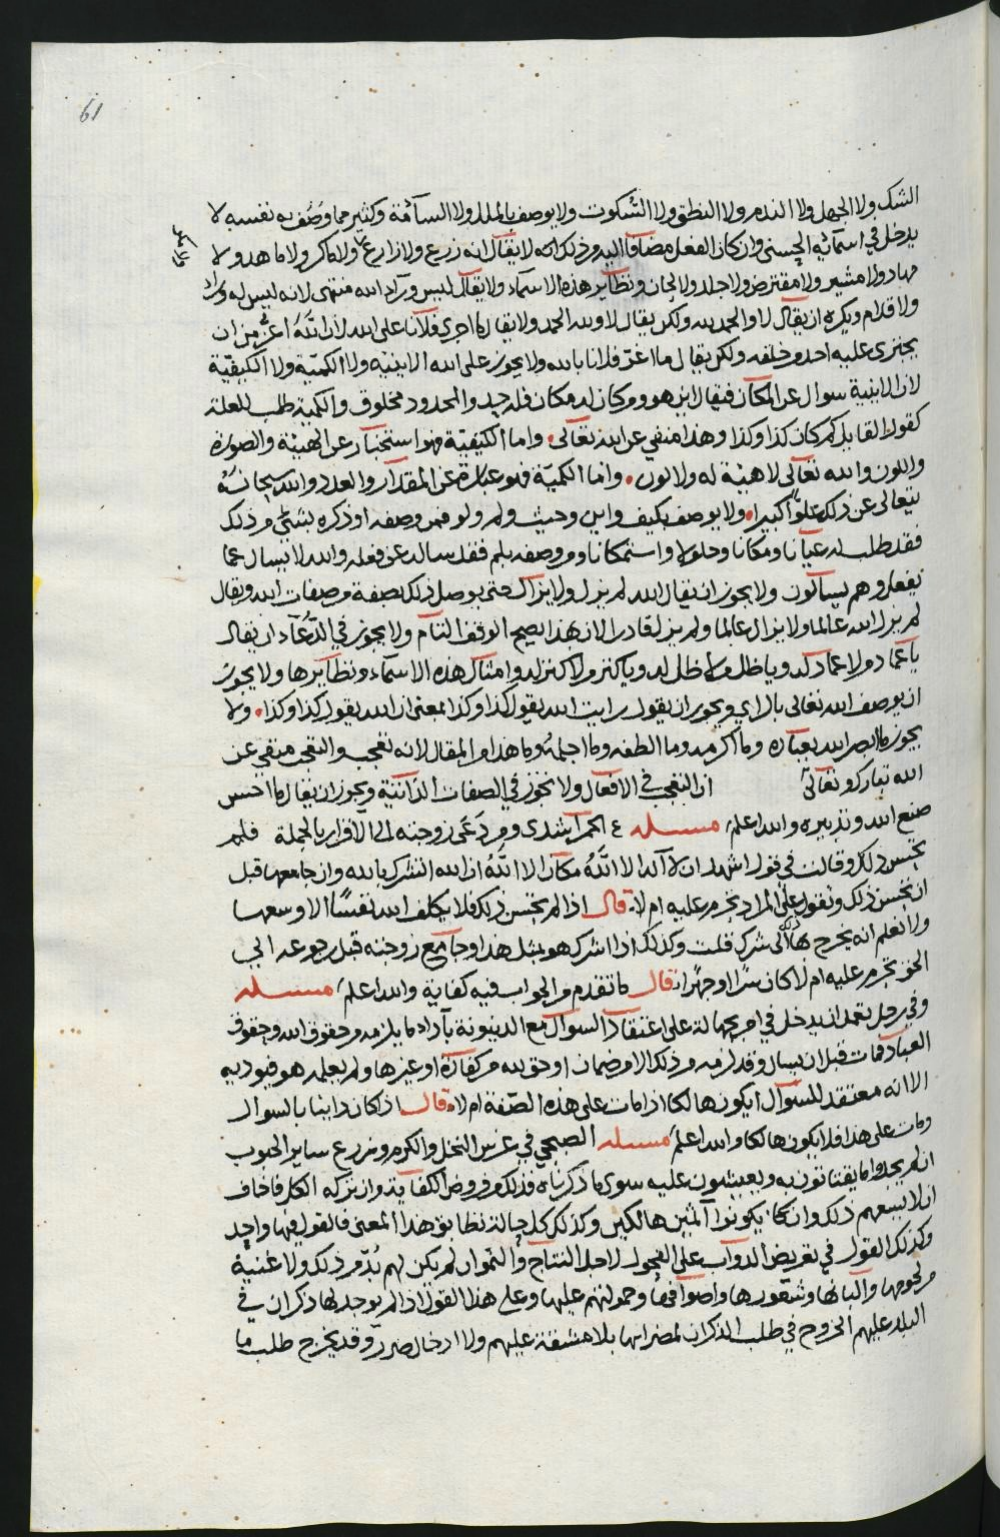 61
الشك ولا الجهل ولا الندم ولا النطق ولا السكوت ولا يوصف بالملل ولا السآمة وكثير مما وصف به نفسه لا
يدخل في اسمائه الحسنى وان كان الفعل مضافا اليه من ذلك انه لا يقال انه زرع ولا زارع ولا ماكر ولا ماهد ولا
مهاد ولا مشير ولا مقترض ولا جلد ولا لحان ونظاير هذه الاسمآء ولا يقال ليس ورآء الله منتهى لانه ليس له ورآء
ولا قدام ويكره ان يقال لا والحمد لله ولكن يقال لا ولله الحمد ولا يقال ما اجرى فلانا على الله لان الله اعز من ان
يجترى عليه احد من خلقه ولكن يقال ما اغر فلانا بالله ولا يجوز على الله الاينية ولا الكمية ولا الكيفية
لان الاينية سوال عن المكان فيقال اين هو ومن كان له مكان فله حد والمحدود مخلوق والكمية طلب للعلة
كقول القايل كم كان كذا وكذا وهذا منفي عن الله تعالى واما الكيفية فهو استخبار عن الهيئة والصورة
واللون والله تعالى لا هيئة له ولا لون واما الكمية فهو عبارة عن المقدار والعدد والله سبحانه
يتعالى عن ذلك علوا كبيرا ولا يوصف بكيف واين وحيث ولم ولو فمن وصفه او ذكره بشئ من ذلك
فقد طلب له عيانا ومكانا وحلولا واستمكانا ومن وصفه بلم فقد ساله عن فعله والله لا يسال عما
يفعل وهم يسالون ولا يجوز ان يقال الله لم يزل ولا يزال حتى يوصل ذلك بصفة من صفات الله ويقال
لم يزل الله عالما ولا يزال عالما ولم يزل قادرا لان بهذا يصح الوقف التام ولا يجوز في الدعآء ان يقال
يا عماد من لا عماد له ويا ظل من لا ظل له ويا كنز من لا كنز له وامثال هذه الاسمآء ونظايرها ولا يجوز
ان يوصف الله تعالى بالراي ويجوز ان يقول رايت الله يقول كذا وكذا المعنى ان الله يقول كذا وكذا ولا
يجوز ما ابصر الله بعباده وما اكرمه وما الطفه وما اجمله وما هذا من المقال لانه تعجب والتعجب منفي عن
الله تبارك وتعالى ان التعجب في الافعال ولا نجوز في الصفات الذاتية ويجوز ان يقال ما احسن
صنع الله وتدبيره والله اعلم مسئله ومن دعى زوجته الى الاقرار بالجملة فلم
تحسن ذلك وقالت في قول اشهد ان لا اله الا الله مكان الا الله ان لله اتشرك بالله وان جامعها قبل
ان تحسن ذلك وتقول على المراد تحرم عليه ام لا قال اذا لم تحسن ذلك فلا يكلف الله نفسا الا وسعها
ولا نعلم انه يخرج بها الى شرك قلت وكذلك اذا اشرك هو بمثل هذا وجامع زوجته قبل رجوعه الى
الحق تحرم عليه ام لا كان سرا او جهرا قال ما تقدم من الجواب فيه كفاية والله اعلم مسئله
وفي رجل تعمد ان يدخل في امر بجهالة على اعتقاد السوال مع الدينونة بآداء ما يلزمه من حقوق الله وحقوق
العباد فمات قبل ان يسال وقد لزمه من ذلك الامر ضمان او حق لله من كفارة او غيرها ولم يعلمه هو فيوديه
الا انه معتقد للسوال ايكون هالكا اذا مات على هذه الصفة ام لا قال اذا كان داينا بالسوال
ومات على هذا فلا يكون هالكا والله اعلم مسئله الصبحي في غرس النخل والكرم وزرع ساير الحبوب
ان لم يجدوا ما يقتاتون به ويعيشون عليه سوى ما ذكرناه فذلك من فروض الكفاية وان تركه الكل فاخاف
ان لا يسعهم ذلك وان يكونوا آثمين هالكين وكذلك كل حالة تطابق هذا المعنى فالقول فيها واحد
وكذلك القول في تعريض الدواب على الفحول لاجل النتاج والنموا ان لم يكن لهم بد من ذلك ولا غنية
من لحومها والبانها وشعورها واصوافها وحمولتهم عليها وعلى هذا القول اذا لم يوجد لها ذكران في
البلد عليهم الخروج في طلب الذكران لمضرابها بلا مشقة عليهم ولا ادخال ضرر وقد يخرج طلب ما